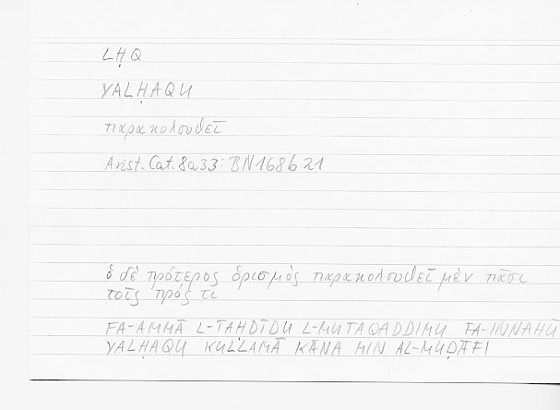 LḤQ
YALḤAQU
παρακολουθεῖ
Arist. Cat. 8a33: BN168b21
ὁ δὲ πρότερος ὁρισμὸς παρακολουθεῖ μὲν πᾶσι
τοῖς πρός τι
FA-AMMĀ L-TAḤDĪDU L-MUTAQADDIMU FA-INNAHŪ
YALḤAQU KULLAMĀ KĀNA MIN AL-MUḌĀFI